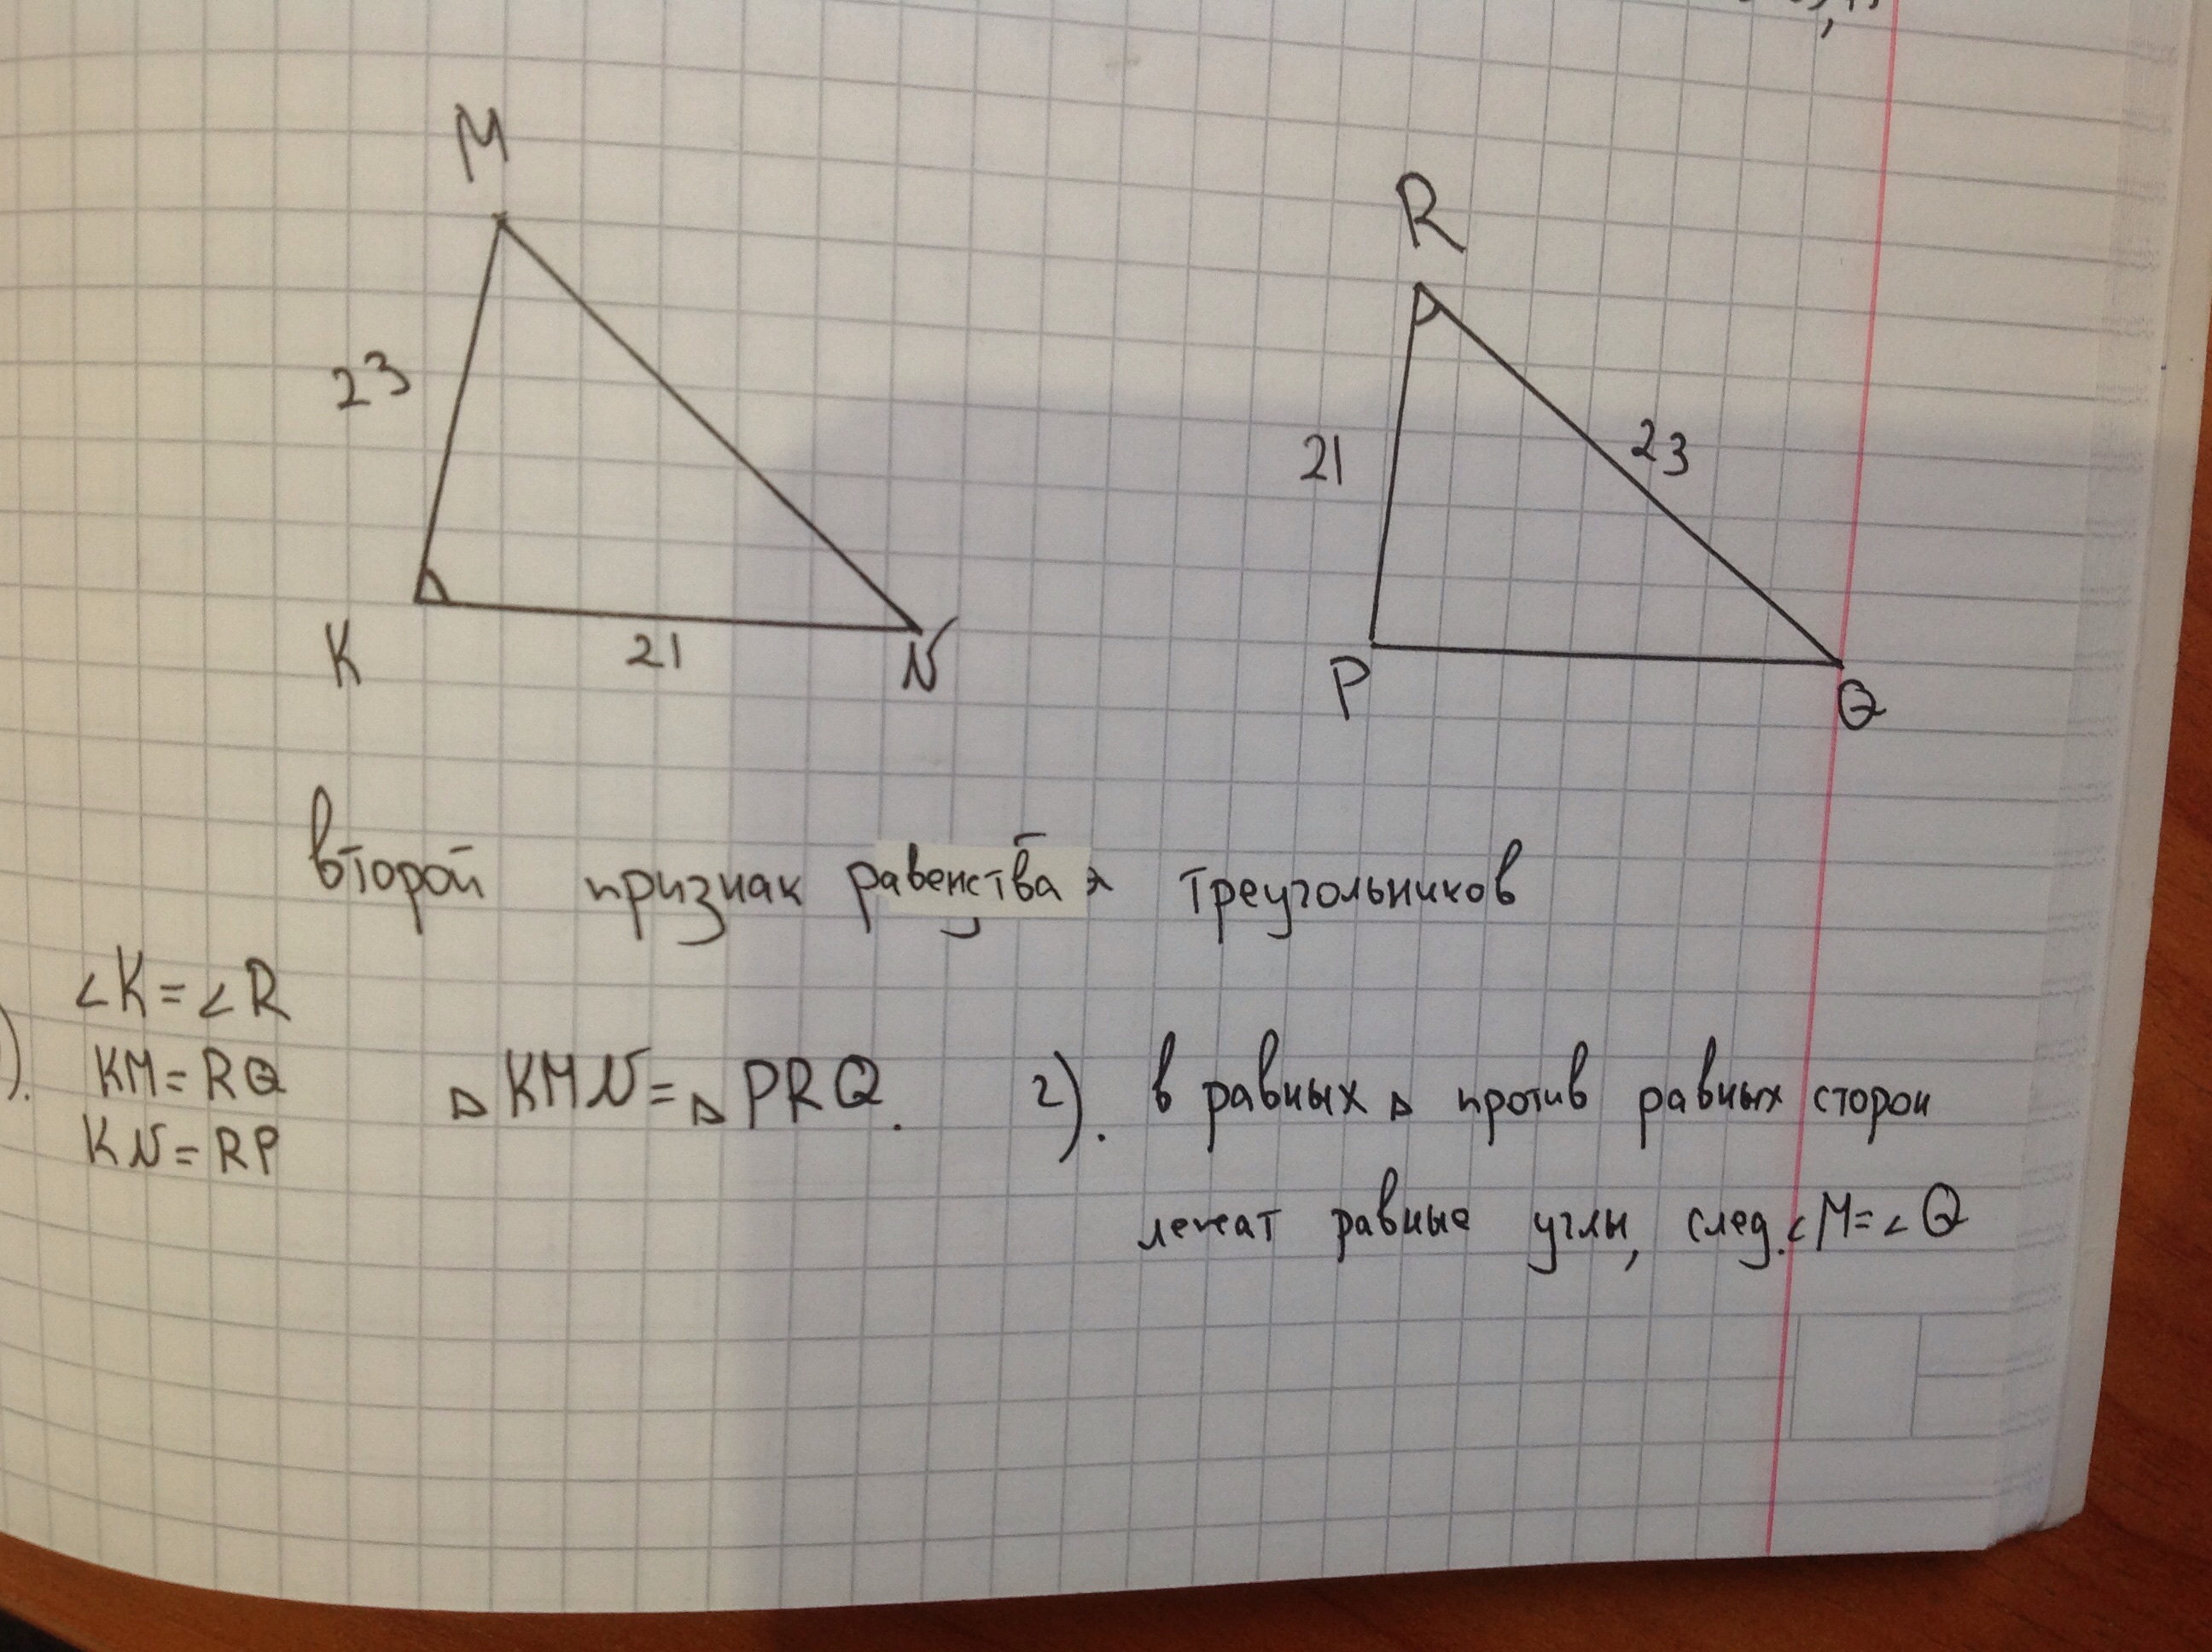 M
R
23
21
23
K
21
N
P
Q
второй признак равенства треугольников
∠K=∠R
KM=RQ
KN=RP
△KMN=△PRQ.
2). в равных △ против равных сторон
лежат равные углы, след. ∠M=∠Q